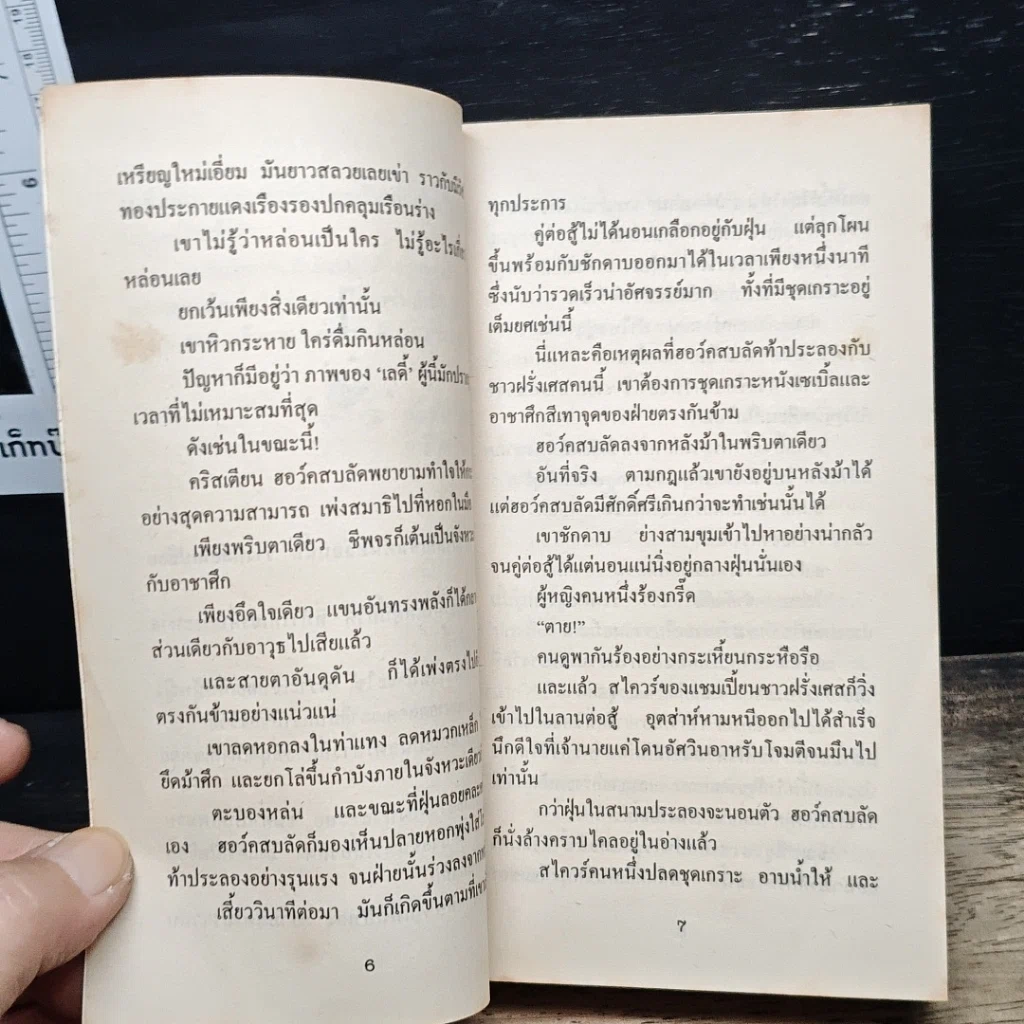 เหรียญใหม่เอี่ยม มันยาวสลวยเลยเข่า ราวกับ
ทองประกายแดงเรืองรองปกคลุมเรือนร่าง
เขาไม่รู้ว่าหล่อนเป็นใคร ไม่รู้อะไร
หล่อนเลย
ยกเว้นเพียงสิ่งเดียวเท่านั้น
เขาหิวกระหาย ใคร่ดื่มกินหล่อน
ปัญหาก็มีอยู่ว่า ภาพของ ‘เลดี้’ ผู้นี้มัก
เวลาที่ไม่เหมาะสมที่สุด
ดังเช่นในขณะนี้!
คริสเตียน ฮอว์คสบลัดพยายามทำใจให้
อย่างสุดความสามารถ เพ่งสมาธิไปที่หอกใน
เพียงพริบตาเดียว ชีพจรก็เต้นเป็นจังหวะ
กับอาชาศึก
เพียงอึดใจเดียว แขนอันทรงพลังก็ได้
ส่วนเดียวกับอาวุธไปเสียแล้ว
และสายตาอันดุดัน ก็ได้เพ่งตรงไป
ตรงกันข้ามอย่างแน่วแน่
เขาลดหอกลงในท่าแทง ลดหมวกเหล็ก
ยึดม้าศึก และยกโล่ขึ้นกำบังภายในจังหวะเดียว
ตะบองหล่น และขณะที่ฝุ่นลอย
เอง ฮอว์คสบลัดก็มองเห็นปลายหอกพุ่งใส่
ท้าประลองอย่างรุนแรง จนฝ่ายนั้นร่วงลงจาก
เสี้ยววินาทีต่อมา มันก็เกิดขึ้นตามที่
6
ทุกประการ
คู่ต่อสู้ไม่ได้นอนเกลือกอยู่กับฝุ่น แต่ลุกโผน
ขึ้นพร้อมกับชักดาบออกมาได้ในเวลาเพียงหนึ่งนาที
ซึ่งนับว่ารวดเร็วน่าอัศจรรย์มาก ทั้งที่มีชุดเกราะอยู่
เต็มยศเช่นนี้
นี่แหละคือเหตุผลที่ฮอว์คสบลัดท้าประลองกับ
ชาวฝรั่งเศสคนนี้ เขาต้องการชุดเกราะหนังเซเบิ้ลและ
อาชาศึกสีเทาจุดของฝ่ายตรงกันข้าม
ฮอว์คสบลัดลงจากหลังม้าในพริบตาเดียว
อันที่จริง ตามกฎแล้วเขายังอยู่บนหลังม้าได้
แต่ฮอว์คสบลัดมีศักดิ์ศรีเกินกว่าจะทำเช่นนั้นได้
เขาชักดาบ ย่างสามขุมเข้าไปหาอย่างน่ากลัว
จนคู่ต่อสู้ได้แต่นอนแน่นิ่งอยู่กลางฝุ่นนั่นเอง
ผู้หญิงคนหนึ่งร้องกรี๊ด
“ตาย!”
คนดูพากันร้องอย่างกระเหี้ยนกระหือรือ
และแล้ว สไควร์ของแชมเปี้ยนชาวฝรั่งเศสก็วิ่ง
เข้าไปในลานต่อสู้ อุตส่าห์หามหนีออกไปได้สำเร็จ
นึกดีใจที่เจ้านายแค่โดนอัศวินอาหรับโจมตีจนมึนไป
เท่านั้น
กว่าฝุ่นในสนามประลองจะนอนตัว ฮอว์คสบลัด
ก็นั่งล้างคราบไคลอยู่ในอ่างแล้ว
สไควร์คนหนึ่งปลดชุดเกราะ อาบน้ำให้ และ
7